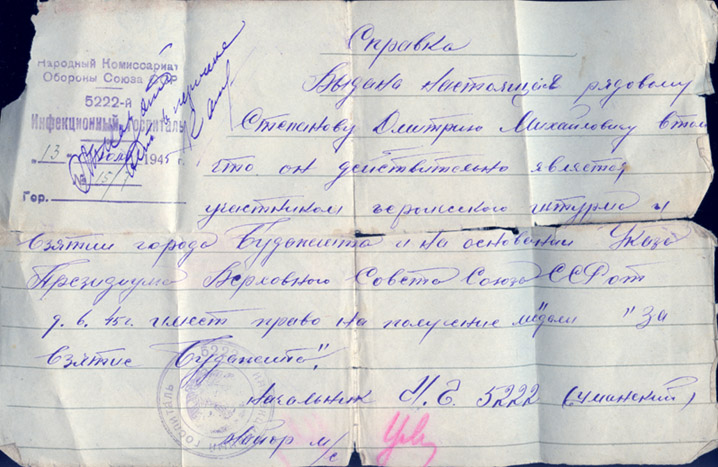 Народный Комиссариат
Обороны Союза ССР
5222-й
Инфекционный госпиталь
"13" 1945 г.
№ 15/
Гор.
Справка
Выдана настоящая рядовому
Степанову Дмитрию Михайловичу в том
что он действительно является
участником геройского штурма и
взятии города Будапешта и на основании Указа
Президиума Верховного Совета Союза ССР от
9.6.45г. имеет право на получение медали "За
взятие Будапешта".
Начальник И.Г. 5222 (Уманский)
Майор м/с
5222
ГОСПИТАЛЬ